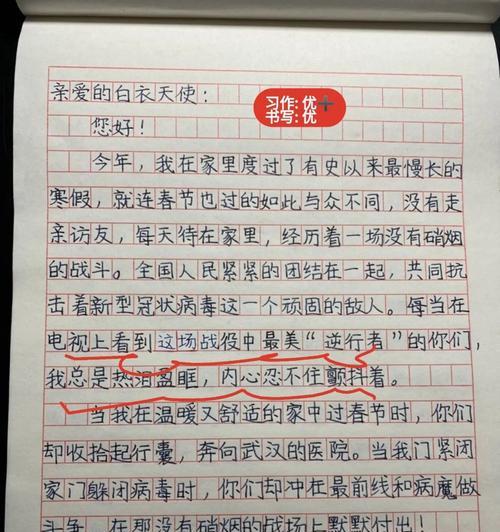 亲爱的白衣天使:
习作:优+
书写:优
您好!
今年,我在家里度过了有史以来最慢长的
寒假,就连春节也过的如此与众不同,没有走
亲访友,每天待在家里,经历着一场没有硝烟
的战斗。全国人民紧紧的团结在一起,共同抗
击着新型冠状病毒这一个顽固的敌人。每当在
电视上看到这场战役中最美“逆行者”的你们,
我总是热泪盈眶,内心忍不住颤抖着。
当我在温暖又舒适的家中过春节时,你们
却收拾起行囊,奔向武汉的医院。当我门紧闭
家门躲闭病毒时,你们却冲在最前线和病魔做
斗争,在那没有硝烟的战场上默默付出!